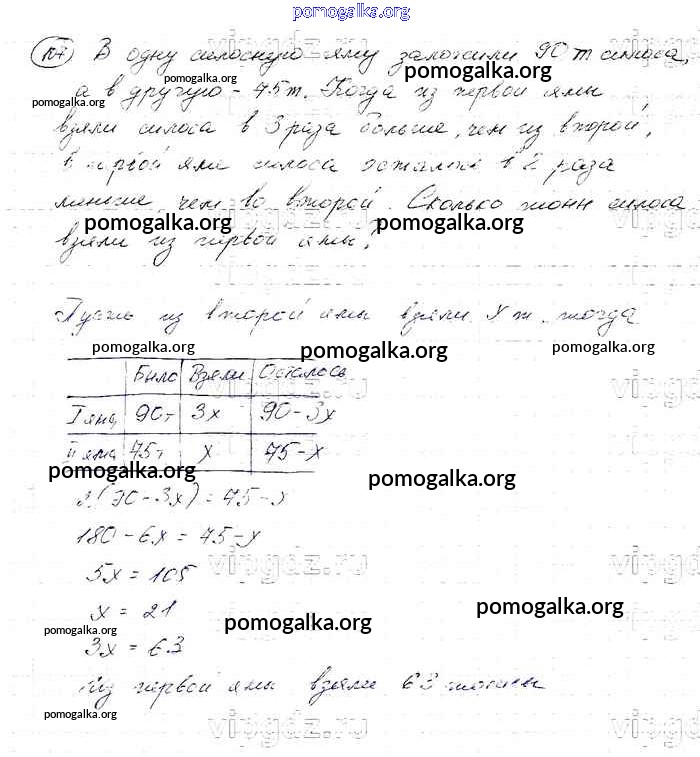 pomogalka.org
107 В одну силосную яму заложили 90 т силоса,
pomogalka.org
pomogalka.org
а в другую - 75 т. Когда из первой ямы
взяли силоса в 3 раза больше, чем из второй,
в первой яме силоса осталось в 2 раза
меньше, чем во второй. Сколько тонн силоса
pomogalka.org pomogalka.org
взяли из первой ямы?
vipgdz.ru
Пусть из второй ямы взяли x т. тогда
pomogalka.org pomogalka.org pomogalka.org
Было Взяли Осталось
I яма 90т 3x 90-3x
II яма 75т x 75-x
vipgdz.ru
pomogalka.org pomogalka.org
2(90-3x)=75-x
180-6x=75-x
5x=105
vipgdz.ru
x=21
pomogalka.org pomogalka.org pomogalka.org
3x=63
Из первой ямы взяли 63 тонны
pomogalka.org
vipgdz.ru